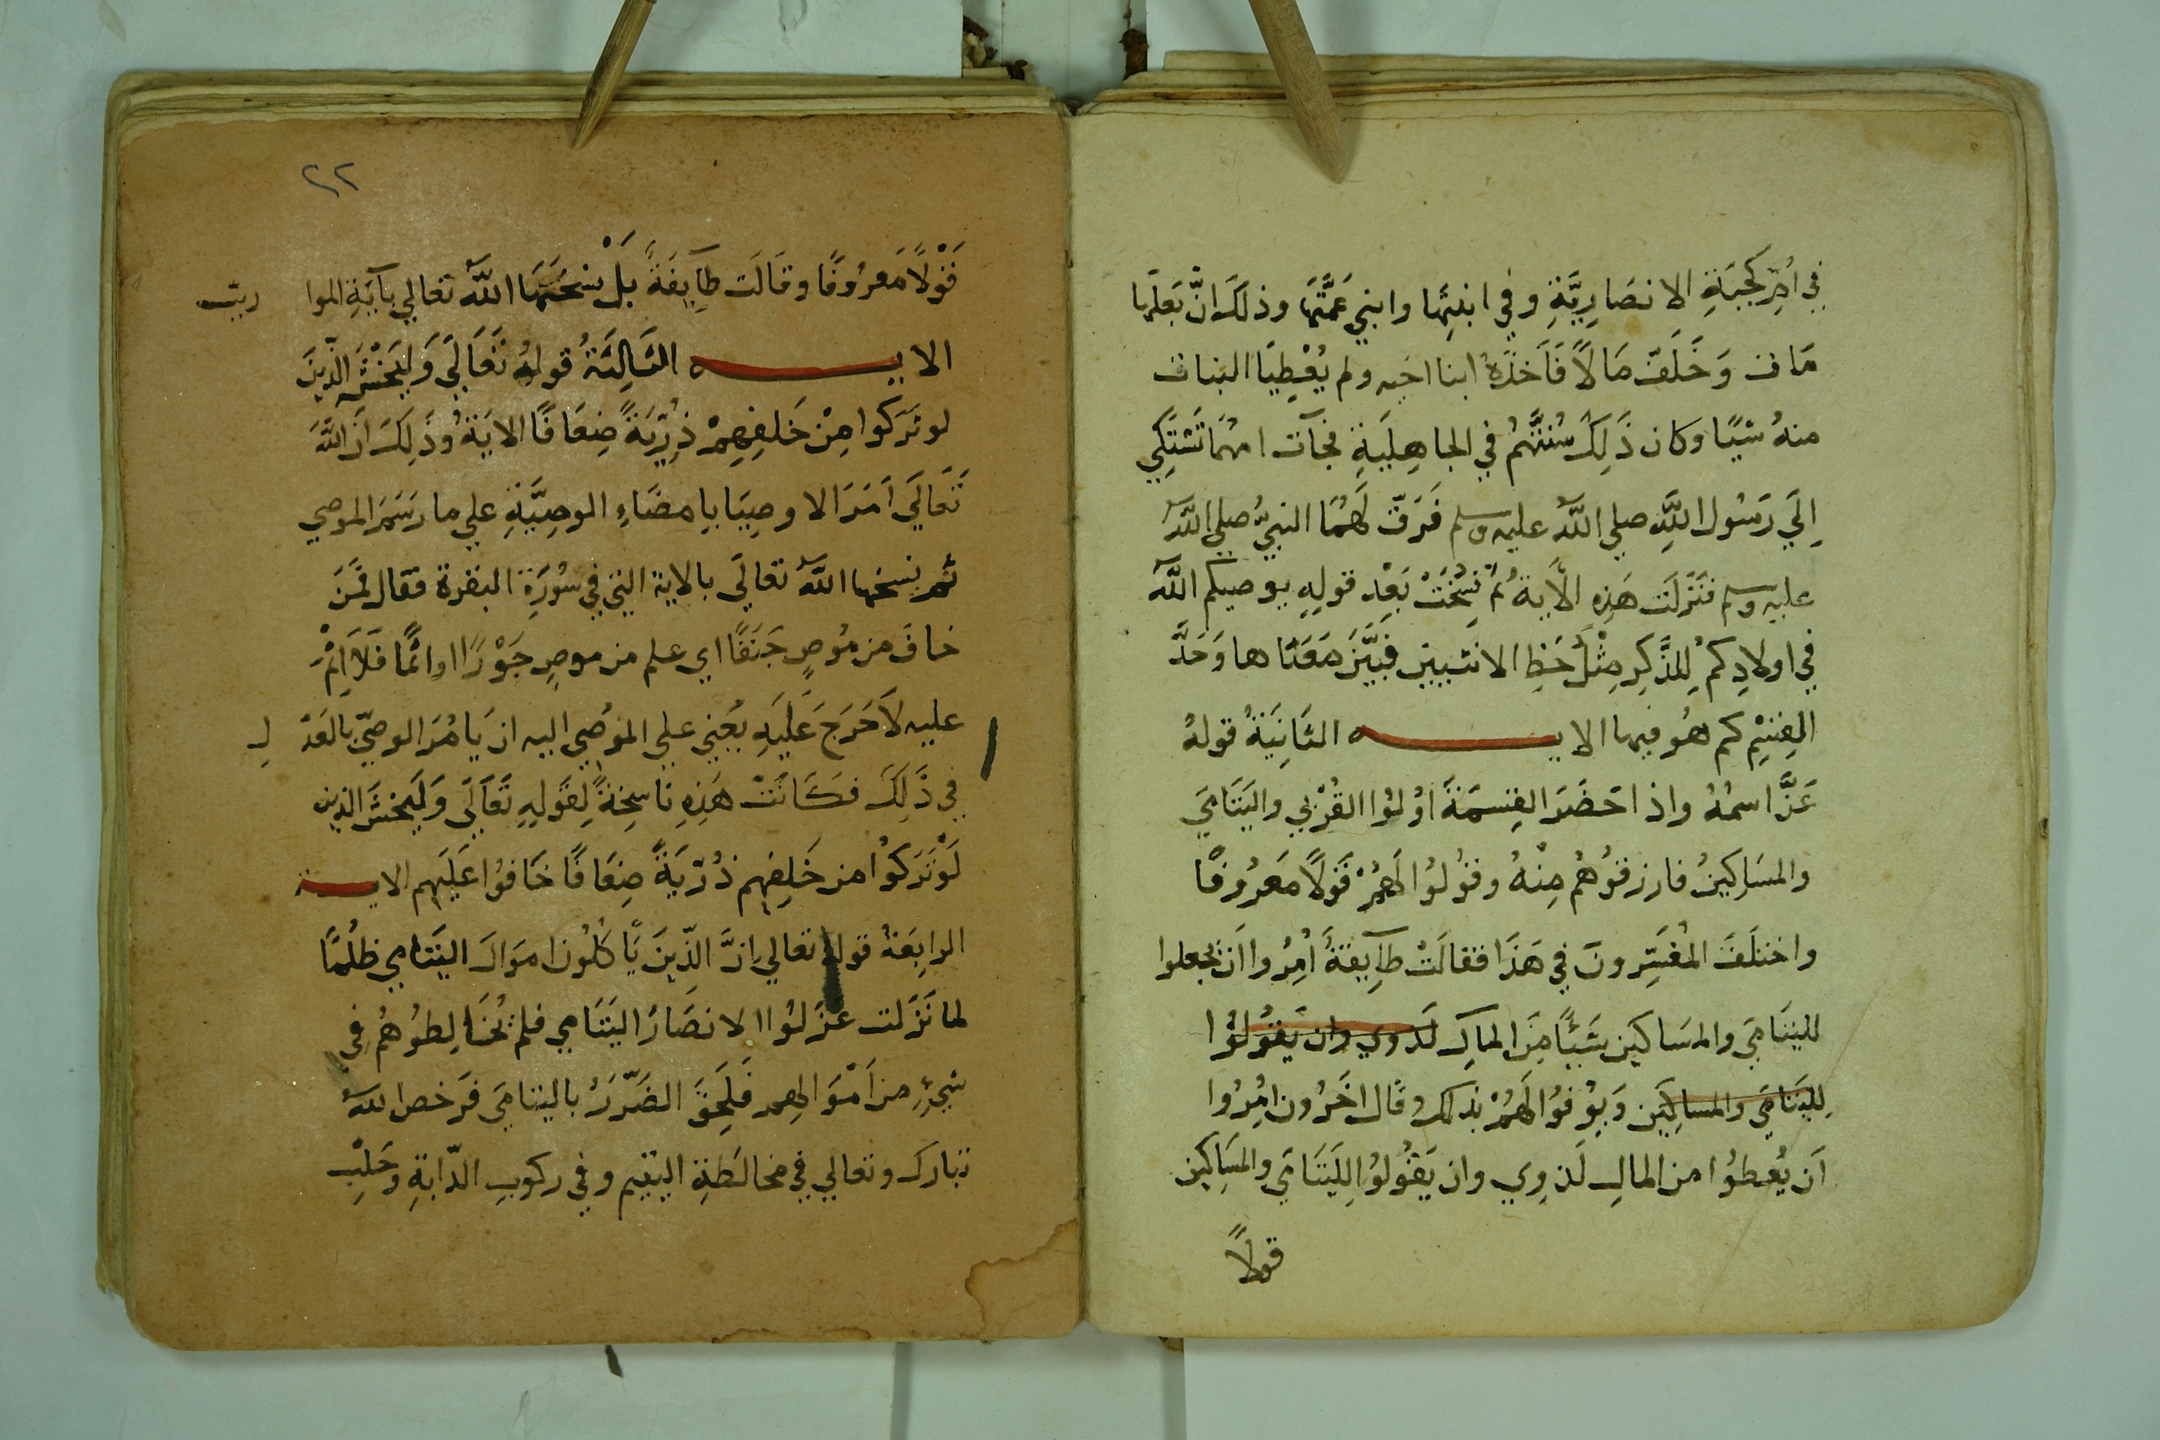 في اُمِّ كُجَّةِ الانصَارِيَّةِ وفي ابنتِها وابني عَمَّتِهَا وذلكَ انَّ بَعلَها
مَات وَخَلَفَ مَالاً فَاَخذَهُ ابنا اخيه ولم يُعْطِيَا البنات
منهُ شيًا وكان ذَلِكَ سُنَّتَهُم في الجاهِليَةِ فجآت امهُمَا تَشتَكِي
اِلَي رَسُول اللَّهِ صلي اللَّهُ عليه وسلم فَرَقّ لَهُمَا النبيُّ صلي اللَّهُ
عليه وسلم فنَزَلَت هَذِهِ الْاَية ثمَّ نُسِخَتْ بَعْد قولِهِ يوصيكم اللَّهُ
في اولادِكمْ لِلذَّكِرِ مِثْلُ حَظِ الانثيين فبَيَّنَ مَعَنَاها وَحَدَّ
القِسْمِ كم هُو فيها الايـــه الثَانِيَةُ قولهُ
عَزَّ اسمُهُ واذا حَضَرَ القِسمَةَ اوْلُوا القُرْبي واليَتَامَي
والمسَاكِينُ فارزقوُهُمْ مِنْهُ وقوُلوُا لَهمُرْ قَولاً مَعرُوفًا
واختلَفَ المُفسِّرونَ في هَذَا فقالَتْ طآيِفةُ اُمِرُوا اَن يجعلوا
لليتَامَي والمسَاكين شَيًا مِنَ المَالِ لَذوي وان يَقوُلوُا
لِليَتَامَي والمساكِين وَيوُفوُا لَهمُرْ بذلك وقَال اخَرُون امِرُوا
اَن يُعطوُا من المالِ لَذوِي وان يَقوُلوُا لِليَتَامَي والمسَاكين
قولاً
٢٢
قَوْلاً مَعرُوفًا وقَالَت طآيِفةً بَلْ نسَخَهَا اللَّهُ تعالي بآيَةِ الموا ريث
الايـــه الثَالِثَةُ قولهُ تَعَالَي وَليَخْشَ الذِّينَ
لو تَرَكوا مِنْ خَلفِهِمْ ذُرِّيَةً ضِعَافًا الايَةُ وذَلِكَ اَنَ اللَّهَ
تَعَالَي اَمَرَ الاوصِيَا بامضَاءِ الوصِيَّةِ علي ما رَسَمَ الموصي
ثم نسخها اللَّهُ تعالَي بالاية التي في سُورَةِ البقرة فقال فمَنَ
خافَ من مُوصٍ جَنَفًا اي علم من موصٍ جَوْرًا او اثمًا فَلاَ اِثمَ
عليه لاَ حَرَجَ عَلَيهِ يعني علي الموُصي اليه ان يَامُرَ الوصيّ بالعَدْ لِ
في ذَلِكَ فكَانَتْ هَذِهِ ناسِخَةً لِقَولِهِ تَعَالَي وَليَخْشَ الذين
لَوْ تَرَكوُا من خَلفِهِم ذُرِّيَةً ضِعَافًا خَافوُا عَلَيهِم الايـــة
الرابِعَة قوله تعالي اِنَّ الذِّينَ يَاكُلُونَ اموَالَ اليَتَامي ظلُمًا
لما نَزَلت عَزَلوُا الانصَارُ اليَتَامي فلم يُخَالِطوُهُمْ في
شيءٍ من اَمْوَالِهم فَلَحِقَ الضَرّرُ باليتامَي فَرَخص اللَّهُ
تبارك وتعالي في مخالطةِ اليتيم وفي ركوبِ الدّابةِ وحَلْبِ